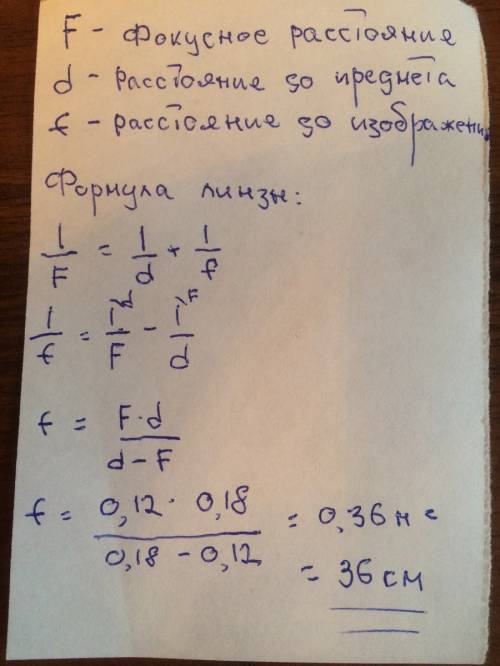 F - Фокусное расстояние
d - Расстояние до предмета
f - расстояние до изображения
Формула линзы:
1/F = 1/d + 1/f
1/f = 1\d/F - 1\F/d
f = F·d/d-F
f = 0,12 · 0,18/0,18 - 0,12 = 0,36м =
= 36 см